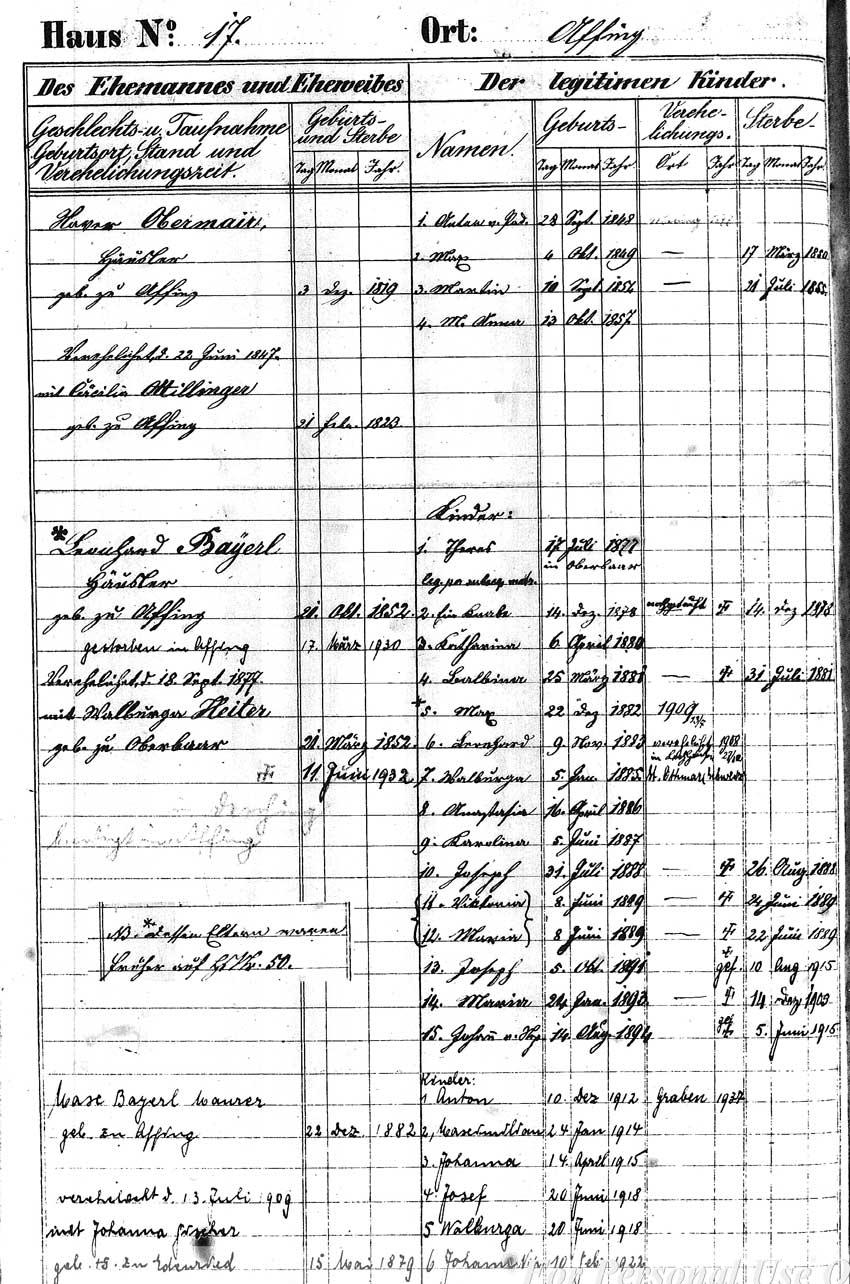 Haus Nº: 17. Ort: Affing
Des Ehemannes und Eheweibes Der legitimen Kinder.
Geschlechts- u. Taufnahme Geburtsort, Stand und Verehelichungszeit. Geburts- und Sterbe Tag Monat Jahr. Namen. Geburts- Tag Monat Jahr. Verehelichungs. Ort Jahr Sterbe- Tag Monat Jahr.
Xaver Obermair, 1. Anton v. Pad. 28 Sept. 1848
Häusler 2. Max 4 Okt. 1849 — 17 März 1850
geb. zu Affing 3 Dez. 1819 3. Martin 10 Sept. — 21 Juli
4. M. Anna 13 Okt. 1857
Verehelicht, d. 22 Juni 1847.
mit Cäcilia Millinger
geb. zu Affing 21 Febr. 1823
Kinder:
* Leonhard Bayerl 1. Theres 17 Juli 1877
in Oberbaar
Häusler leg. per subseq. matr.
geb. zu Affing 21. Okt. 1852. 2. Ein Knabe 14. Dez. 1878 nothgetauft † 14. Dez 1878
gestorben in Affing 17. März 1930 3. Katharina 6. April 1880
Verehelicht, d 18. Sept. 1877. 4. Balbina 25 März 1881 — † 31 Juli 1881
mit Walburga Heiter * 5. Max 22 Dez 1882 1909 13/7
geb. zu Oberbaar 21. März 1852. 6. Leonhard 9 Nov. 1883 verehelicht 1908
in
† 11. Juni 1932 7. Walburga 5. Jan. 1885 St. Ottmar
8. Anastasia 16. April 1886
Derching
9. Karolina 5. Juni 1887
in Affing
10. Joseph 31. Juli 1888 — † 26. Aug. 1888
11. Viktoria 8. Juni 1889 — † 24 Juni 1889
NB. * Dessen Eltern waren 12. Maria 8 Juni 1889 — † 22 Juni 1889
früher auf Hs Nr. 50. 13. Joseph 5. Okt. 1891 † gef. 10 Aug 1915
14. Maria 24 Jan. 1893 — † 14 Dez 1903
15. Johann v. Nep. 14. Aug. 1894 gef. † 5. Juni
Kinder:
Maxe Bayerl Maurer 1 Anton 10. Dez 1912 Graben 1937
geb. zu Affing 22 Dez. 1882 2, Maximilian 24 Jan 1914
3. Johanna 14. April 1915
verehelicht d. 13. Juli 1909 4. Josef 20 Juni 1918
mit Johanna Fischer 5 Walburga 20 Juni 1918
geb. zu 15. Mai 1879 6 Johann 10 Feb. 1922
For Personal Use O